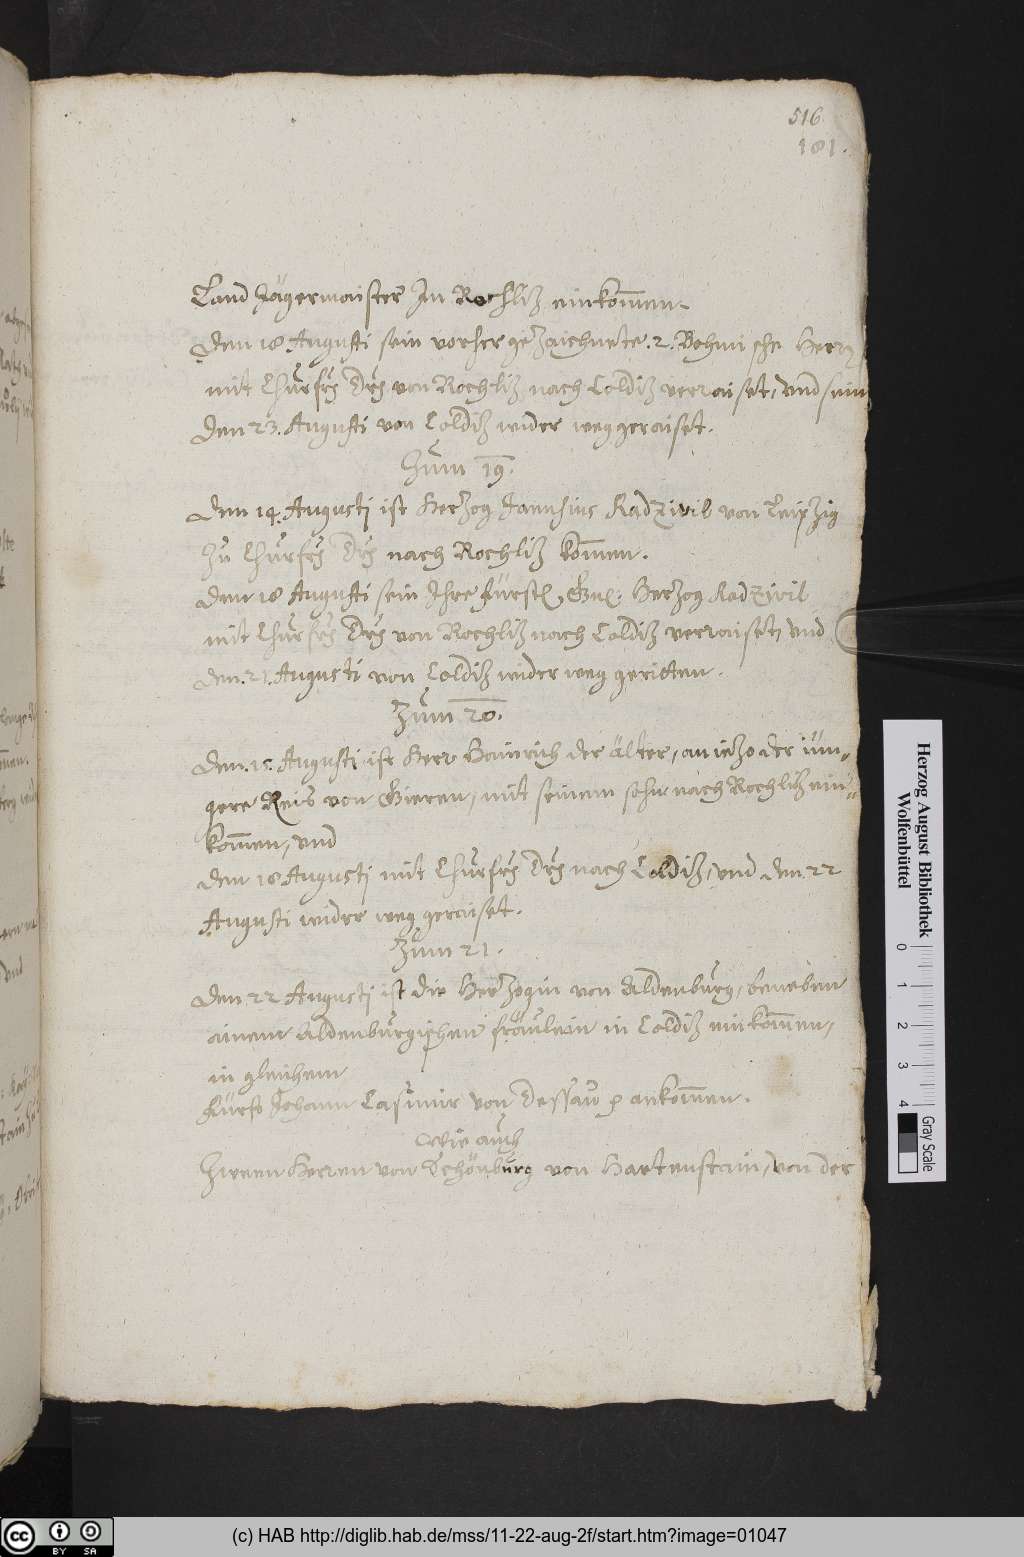 516
181.
Land Jägermaister Jn Rochliz einkom̃en.
Den 18 Augusti sein vorher gezaichnete .2. Behmische Herrn
mit Churfrs Drs von Rochliz nach Coldiz verraiset, vnd sein
den 23. Augusti von Coldiz wider weg geraiset.
Zum 19.
Den 14. Augusti ist Herzog Janusius Radzivil von Leipzig
zu Churfrs Drs nach Rochliz kom̃en.
Den 18 Augusti sein Jhre fürstl. Gn. Herzog Radzivil
mit Churfrs Drs von Rochliz nach Coldiz verraiset, vnd
den 21. Augusti von Coldiz wider weg geritten.
Zum 20.
Den .15. Augusti ist Herr Hainrich der älter, an iezo der jün=
gere Reis von Gieren, mit seinem sohn nach Rochliz ein=
kom̃en, vnd
den 18 Augusti mit Churfrs Drs nach Coldiz, vnd den 22
Augusti wider weg geraiset.
Zum 21.
Den 22 Augusti ist die Herzogin von Aldenburg, beneben
ainem Aldenburgischen fräulein in Coldiz einkom̃en,
in gleichem
Fürst Johann Casimir von Dessau p ankom̃en.
Wie auch
Zween Herren von Schönburg von Hartenstain, von der
Herzog August Bibliothek
Wolfenbüttel
0 1 2 3 4
Gray Scale
cc BY SA
(c) HAB http://diglib.hab.de/mss/11-22-aug-2f/start.htm?image=01047